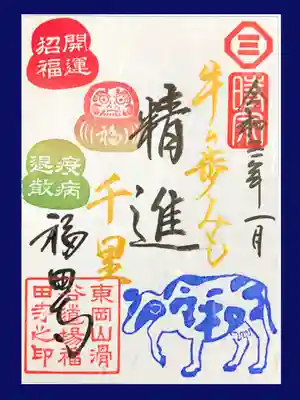 三
令和三年一月
牛の歩みも
千里
精進
福田寺
開運
招福
福
疫病
退散
東岡山滑
谷道場福
田寺之印